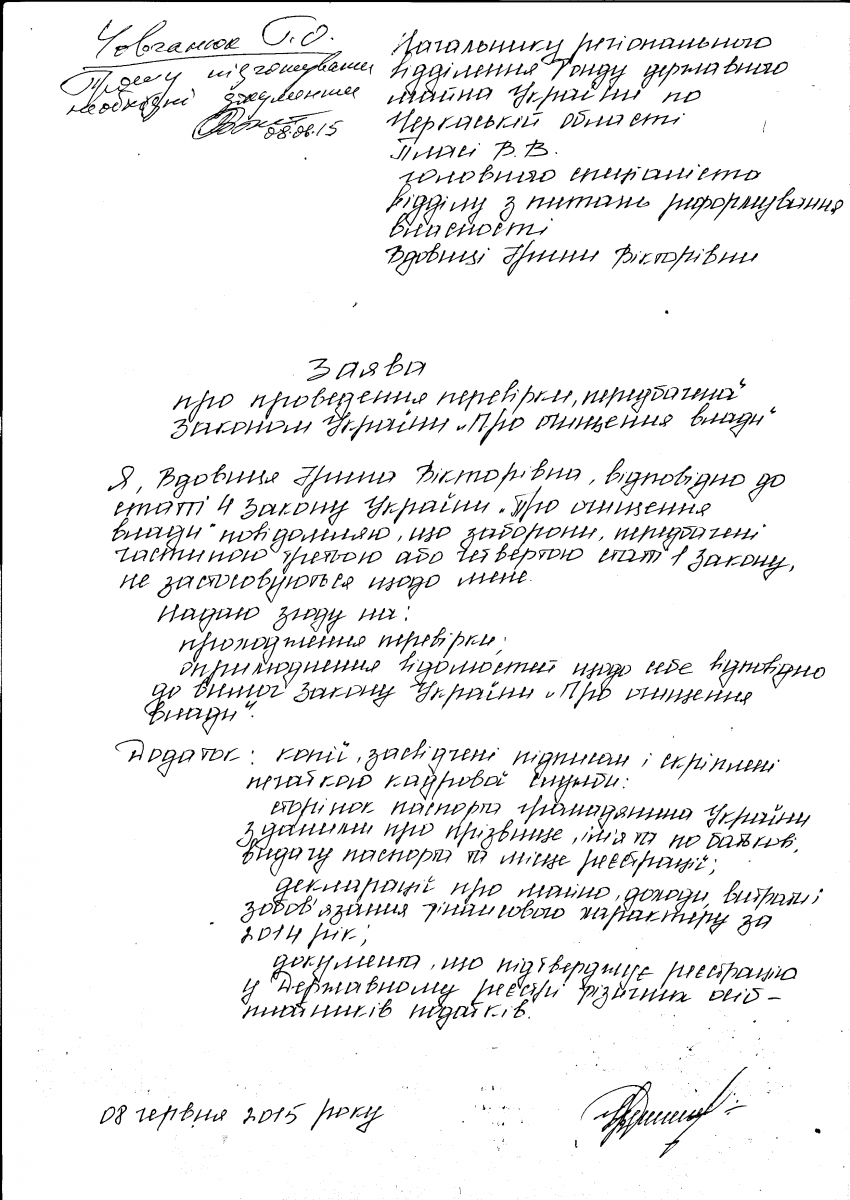 Човганюк Г.О.
Прошу підготувати
необхідні документи
08.06.15
Начальнику регіонального
відділення Фонду державного
майна України по
Черкаській області
Пласі В.В.
головного спеціаліста
відділу з питань реформування
власності
Вдовиці Ірини Вікторівни
Заява
про проведення перевірки, передбаченої
Законом України „Про очищення влади"
Я, Вдовиця Ірина Вікторівна, відповідно до
статті 4 Закону України „Про очищення
влади" повідомляю, що заборони, передбачені
частиною третьою або четвертою статті 1 Закону,
не застосовуються щодо мене.
Надаю згоду на:
проходження перевірки;
оприлюднення відомостей щодо себе відповідно
до вимог Закону України „Про очищення
влади".
Додаток: копії, засвідчені підписом і скріплені
печаткою кадрової служби:
сторінок паспорта громадянина України
з даними про прізвище, ім'я та по батькові,
видачу паспорта та місце реєстрації;
декларації про майно, доходи, витрати і
зобов'язання фінансового характеру за
2014 рік;
документа, що підтверджує реєстрацію
у Державному реєстрі фізичних осіб –
платників податків.
08 червня 2015 року